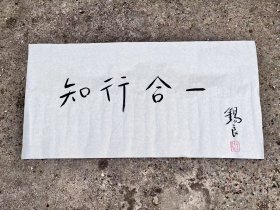 知行合一
錫良